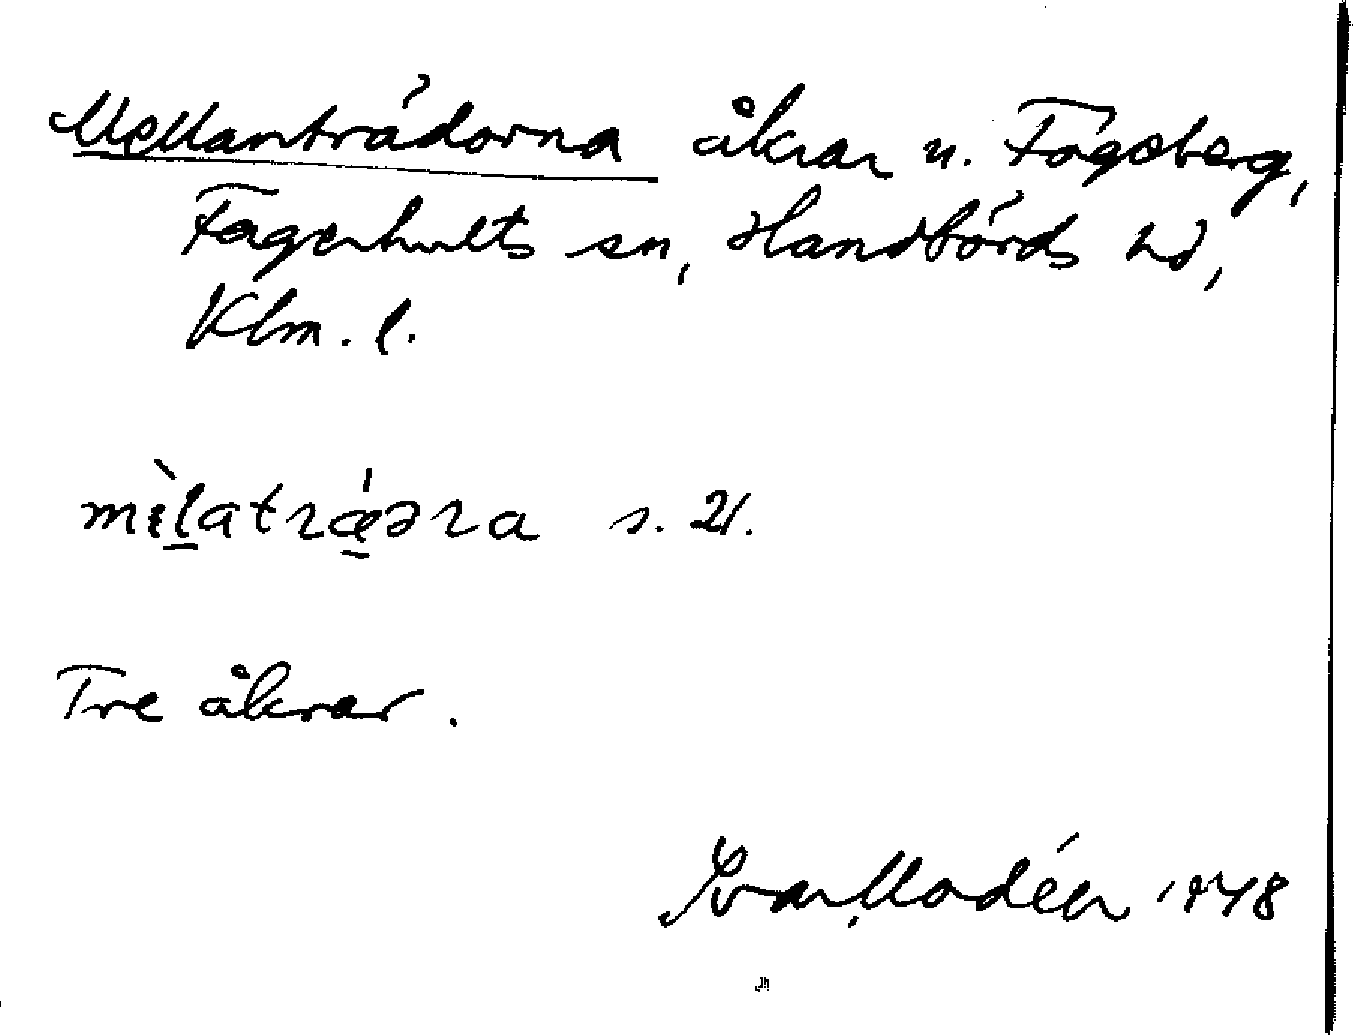 Mellanträdorna åkrar u. Fågeberg,
Fagerhults sn, Handbörds hd,
Klm. l.
mὲlatrǽǝra s. 21.
Tre åkrar.
Ivar Modéer 1948